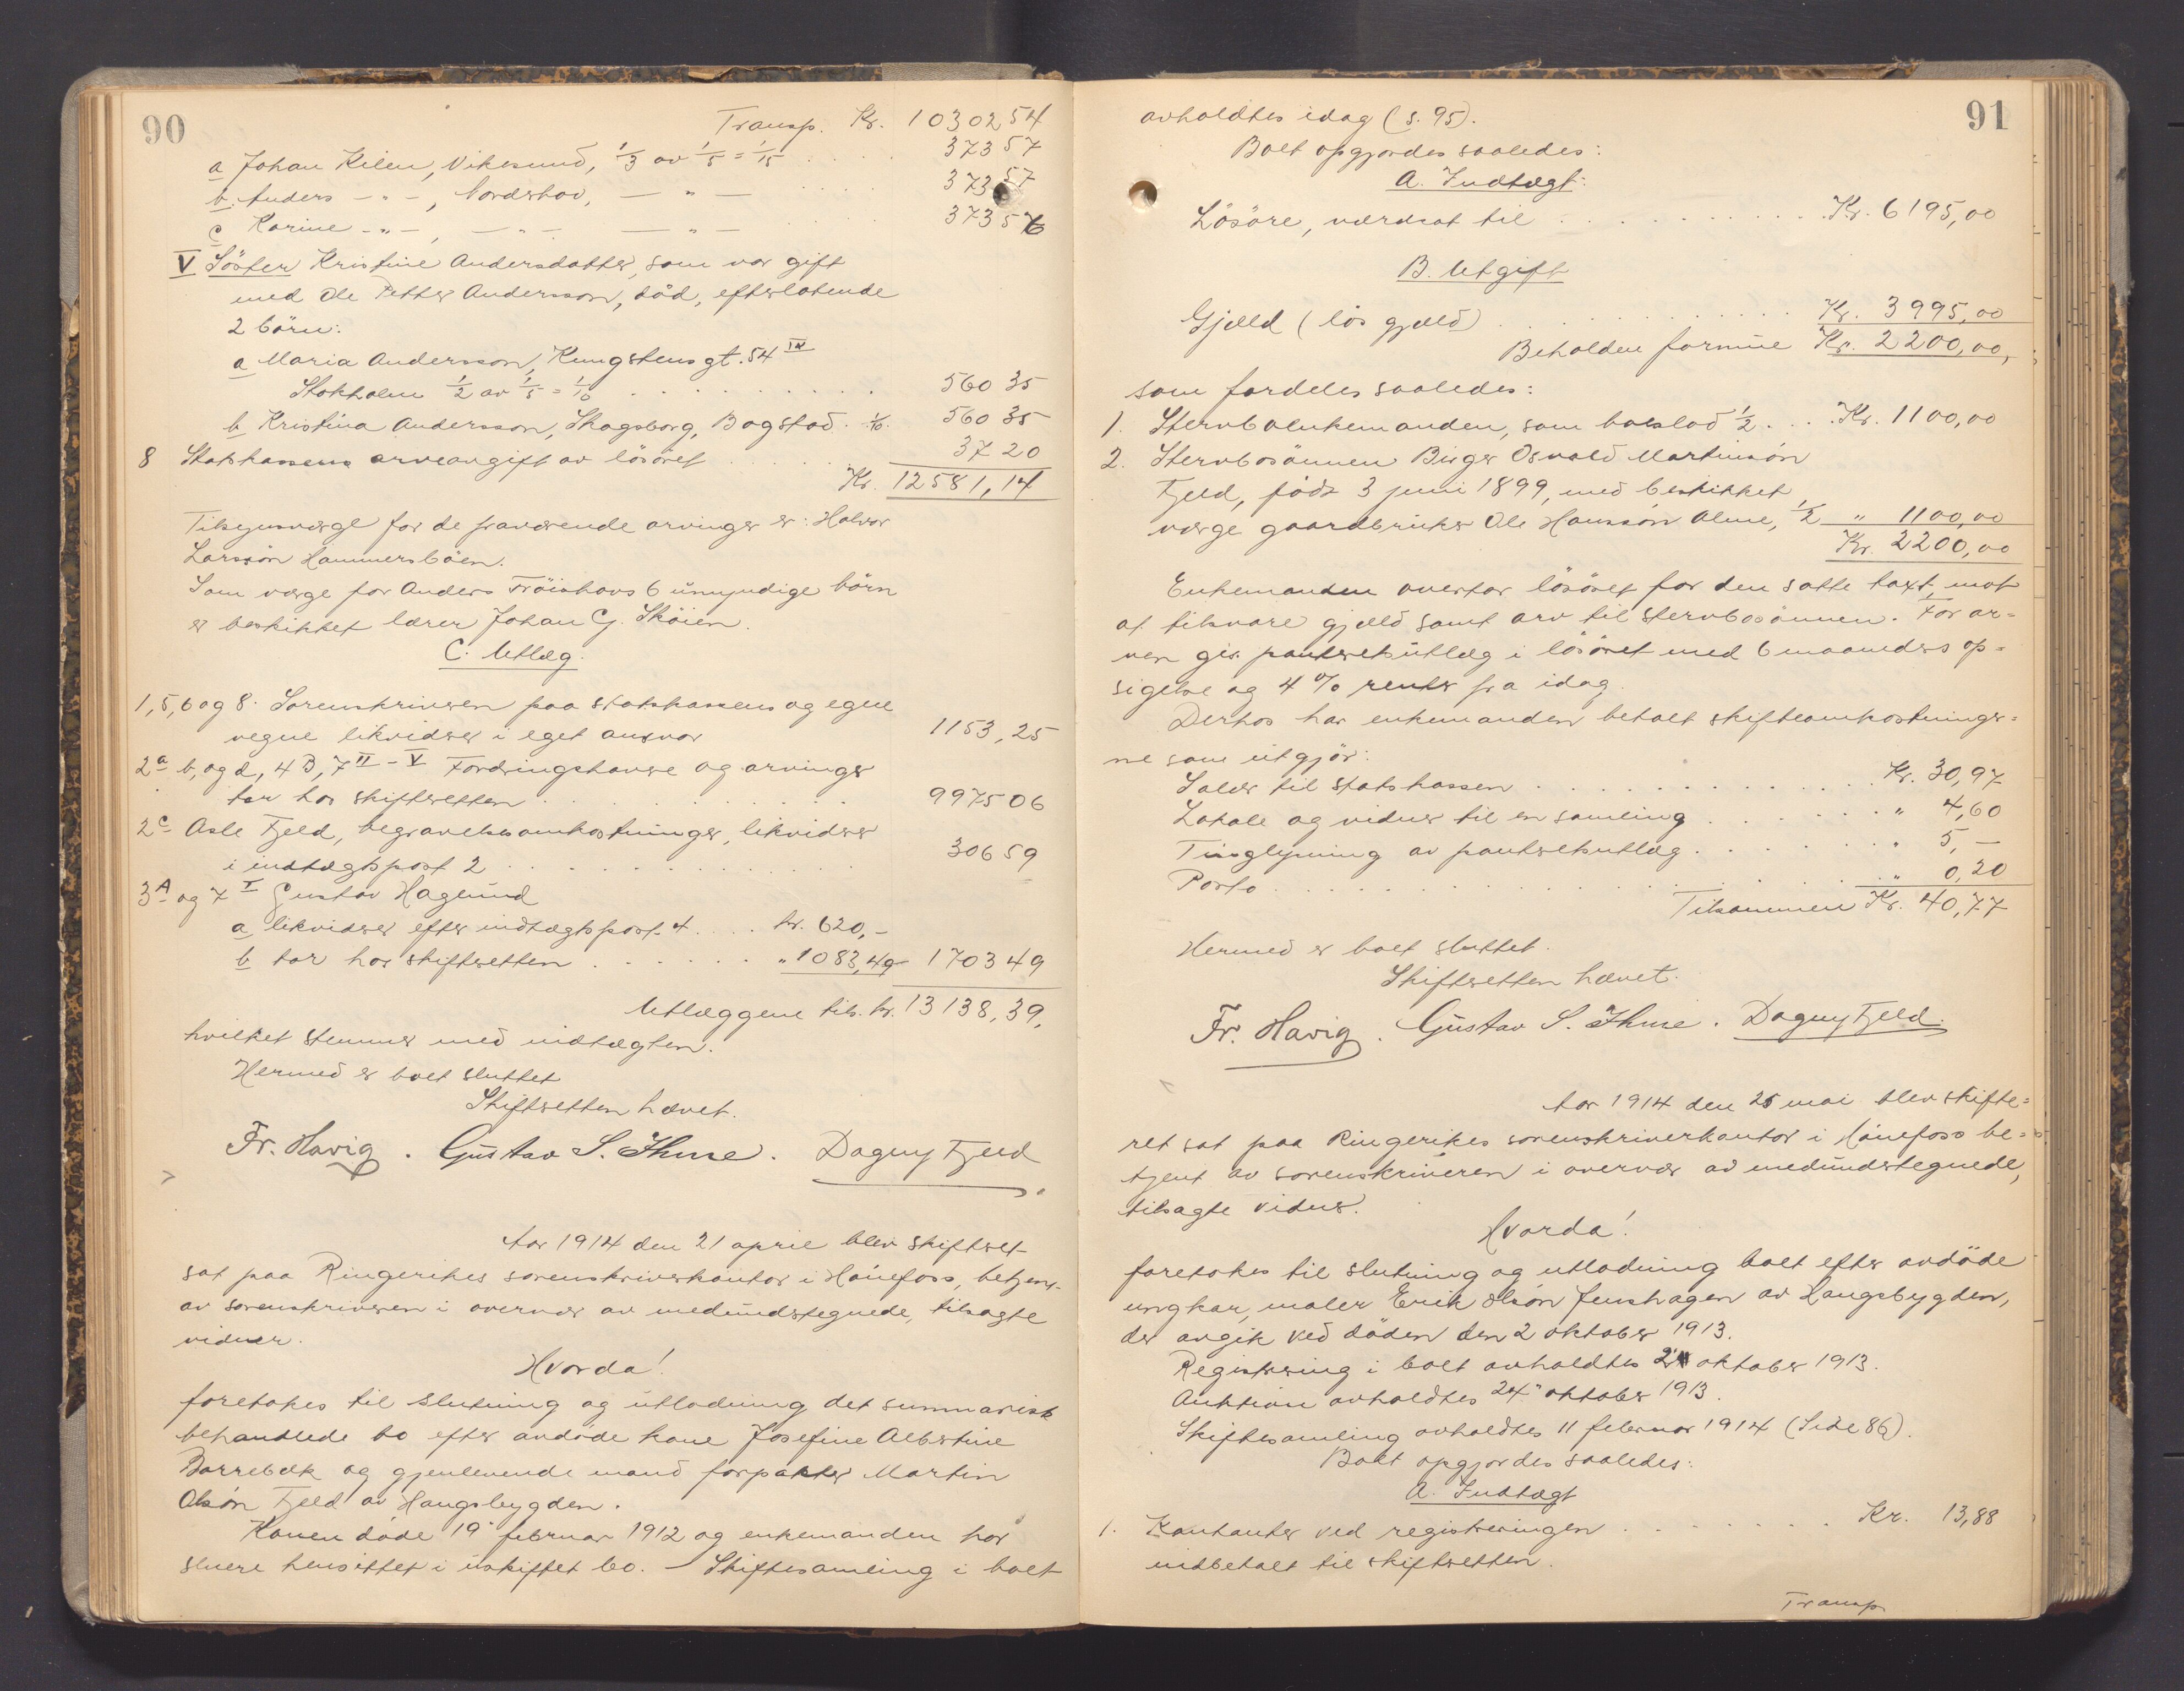 90
Transp. Kr. 10302 54
a Johan Kilen, Vikesund, 1/3 av 1/5 = 1/15 . . . . 373 57
b. Anders - " -, Norderhov, — " — . . . . 373 57
c Karine - " -, — " — — " — . . . . 373 56
V Söster Kristine Andersdatter, som var gift
med Ole Petter Andersson, död, efterlatende
2 börn:
a Maria Andersson, Kungstensgt. 54 IV
Stokholm 1/2 av 1/5 = 1/10 . . . . . . . . 560 35
b Kristina Andersson, Skogsborg, Bogstad. 1/10. 560 35
8 Statskassens arveavgift av lösöret . . . . 37 20
Kr. 12581,14
Tilsynsværge for de fraværende arvinger er: Halvor
Larssön Hammersböen.
Som værge for Anders Fröishovs 6 umyndige börn
er beskikket lærer Johan G. Sköien.
C. Utlæg.
1, 5, 6 og 8. Sorenskriveren paa statskassens og egne
vegne likviderer i eget ansvar 1153,25
2 a b, og d, 4 B, 7 II - V Fordringshavere og arvinger
tar hos skifteretten . . . . . . . . . 9975 06
2 c Asle Fjeld, begravelsesomkostninger, likviderer
i indtægtspost 2 . . . . . . . . . . 306 59
3 A og 7 I Gustav Haglund
a, likviderer efter indtægtspost 4 . . . . kr. 620,-
b tar hos skifteretten . . . . . . . " 1083,49 1703 49
Utlæggene tils. kr. 13138,39,
hvilket stemmer med indtægten.
Hermed er boet sluttet
Skifteretten hævet.
Fr. Havig. Gustav S. Ihme. Dagny Fjeld
Aar 1914 den 21 april blev skifteret
sat paa Ringerikes sorenskriverkontor i Hönefoss, betjent
av sorenskriveren i overvær av medundertegnede, tilsagte
vidner.
Hvorda!
foretokes til slutning og utlodning det summarisk
behandlede bo efter avdöde kone Josefine Albertine
Dorrebæk og gjenlevende mand forpakter Martin
Olsön Fjeld av Haugsbygden.
Konen döde 19 februar 1912 og enkemanden har
senere hensittet i uskiftet bo. - Skiftesamling i boet
91
avholdtes idag (s. 95).
Boet opgjordes saaledes:
A. Indtægt:
Lösöre, værdsat til . . . . . . . . . . . Kr. 6195,00
B. Utgift
Gjæld (lös gjæld) . . . . . . . . . . . Kr. 3995,00
Beholden formue Kr. 2200,00,
som fordeles saaledes:
1. Stervboenkemanden, som boslod 1/2 . . . Kr. 1100,00
2. Stervbosönnen Birger Osvald Martinsön
Fjeld, född 3 juni 1899, med beskikket
værge gaardbruker Ole Hanssön Alme, 1/2 " 1100,00
Kr. 2200,00
Enkemanden overtar lösöret for den satte taxt, mot
at tilsvare gjæld samt arv til stervbosönnen. For ar-
ven gis panteretsutlæg i lösöret med 6 maaneders op-
sigelse og 4 % renter fra idag.
Derhos har enkemanden betalt skifteomkostninger-
ne som utgjör:
Salær til statskassen . . . . . . . . . . Kr. 30,97
Lokale og vidner til en samling . . . . . . " 4,60
Tinglysning av panteretsutlæg . . . . . . . " 5,-
Porto . . . . . . . . . . . . . . . . " 0,20
Tilsammen Kr. 40,77
Hermed er boet sluttet.
Skifteretten hævet.
Fr. Havig. Gustav S. Ihme. Dagny Fjeld.
Aar 1914 den 25 mai blev skifte-
ret sat paa Ringerikes sorenskriverkontor i Hönefoss be-
tjent av sorenskriveren i overvær av medundertegnede,
tilsagte vidner.
Hvorda!
foretokes til slutning og utlodning boet efter avdöde
ungkar, maler Erik Olsön Jenshagen av Haugsbygden,
der avgik ved döden den 2 oktober 1913.
Registrering i boet avholdtes 24 oktober 1913.
Auktion avholdtes 24 oktober 1913.
Skiftesamling avholdtes 11 februar 1914 (Side 86).
Boet opgjordes saaledes:
A. Indtægt
1. Kontanter ved registreringen . . . . . . . Kr. 13,88
indbetalt til skifteretten.
Transp.